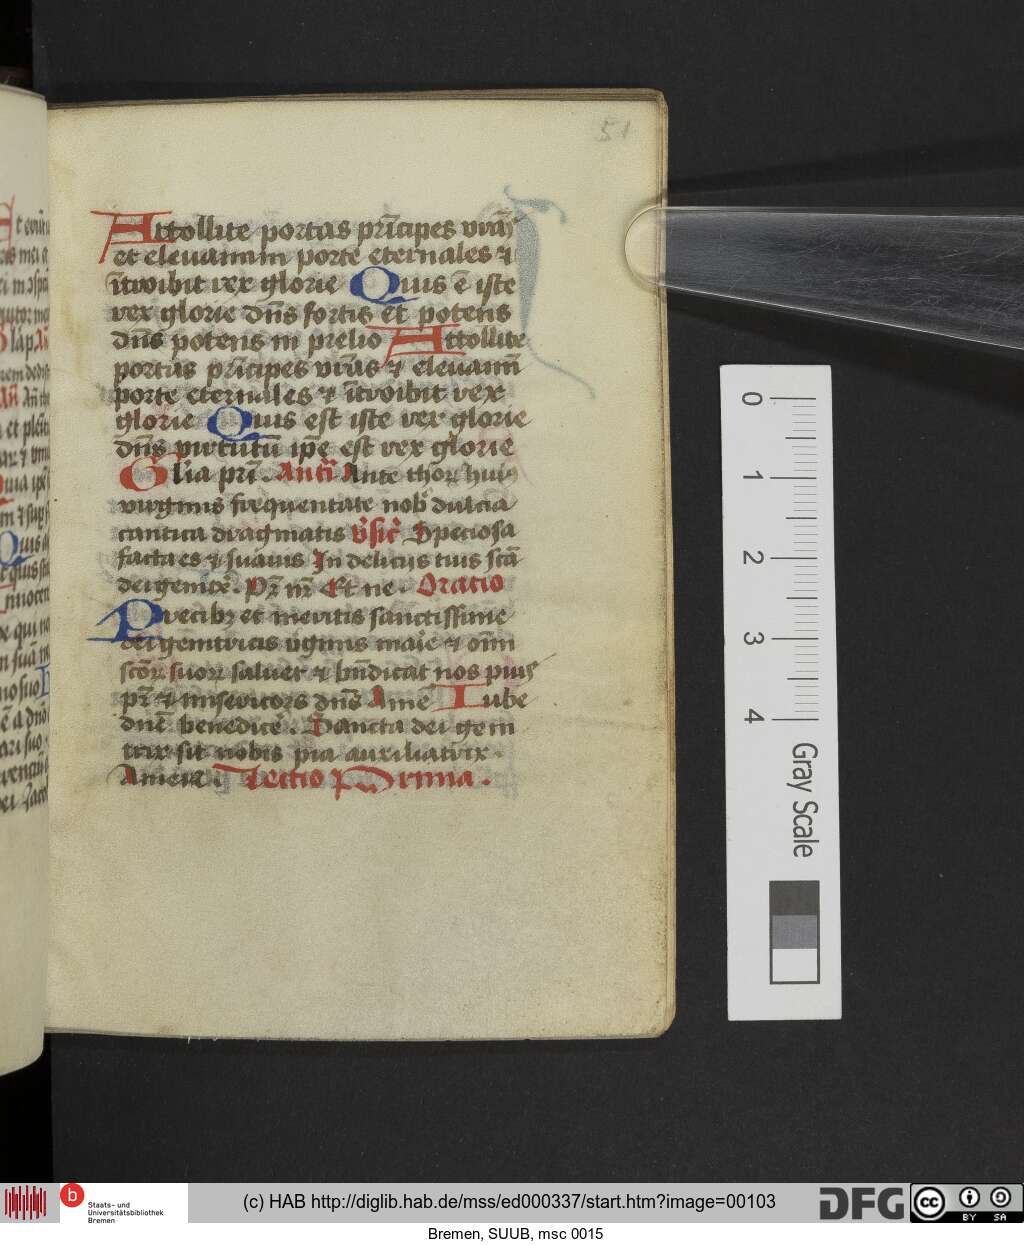 51
Attollite portas pṙıcipes vrās
et eleuamini porte eternales ⁊
ītroibit rex glorie Quis ē iste
rex glorie dn̄s fortis et potens
dn̄s potens in prelio Attollite
portas pṙıcipes vrās ⁊ eleuamī
porte eternales ⁊ ītroibit rex
glorie Quis est iste rex glorie
dn̄s virtutū ip̄e est rex glorie
Gl̄ia pr̄i. Antī Ante thoꝝ huiꝰ
virginis frequentate nob̄ dulcia
cantica dragmatis v̄sic̄ Speciosa
facta es ⁊ suauis In delicijs tuis sc̄ā
dei genit͛x. Pr̄ nr̄ Et ne. Oratio
Precibꝫ et meritis sanctissime
dei genitricis v̄ginis marie ⁊ oīm
sc̄oꝝ suoꝝ saluet ⁊ bn̄dicat nos pius
pr̄ ⁊ misericors dn̄s Amē Iube
dn̄e benedice. Sancta dei geni
trix sit nobis pia auxiliatrix.
Amen. Lectio Prima.
0
1
2
3
4
Gray Scale
b
Staats- und
Universitätsbibliothek
Bremen
(c) HAB http://diglib.hab.de/mss/ed000337/start.htm?image=00103
DFG
cc
BY SA
Bremen, SUUB, msc 0015